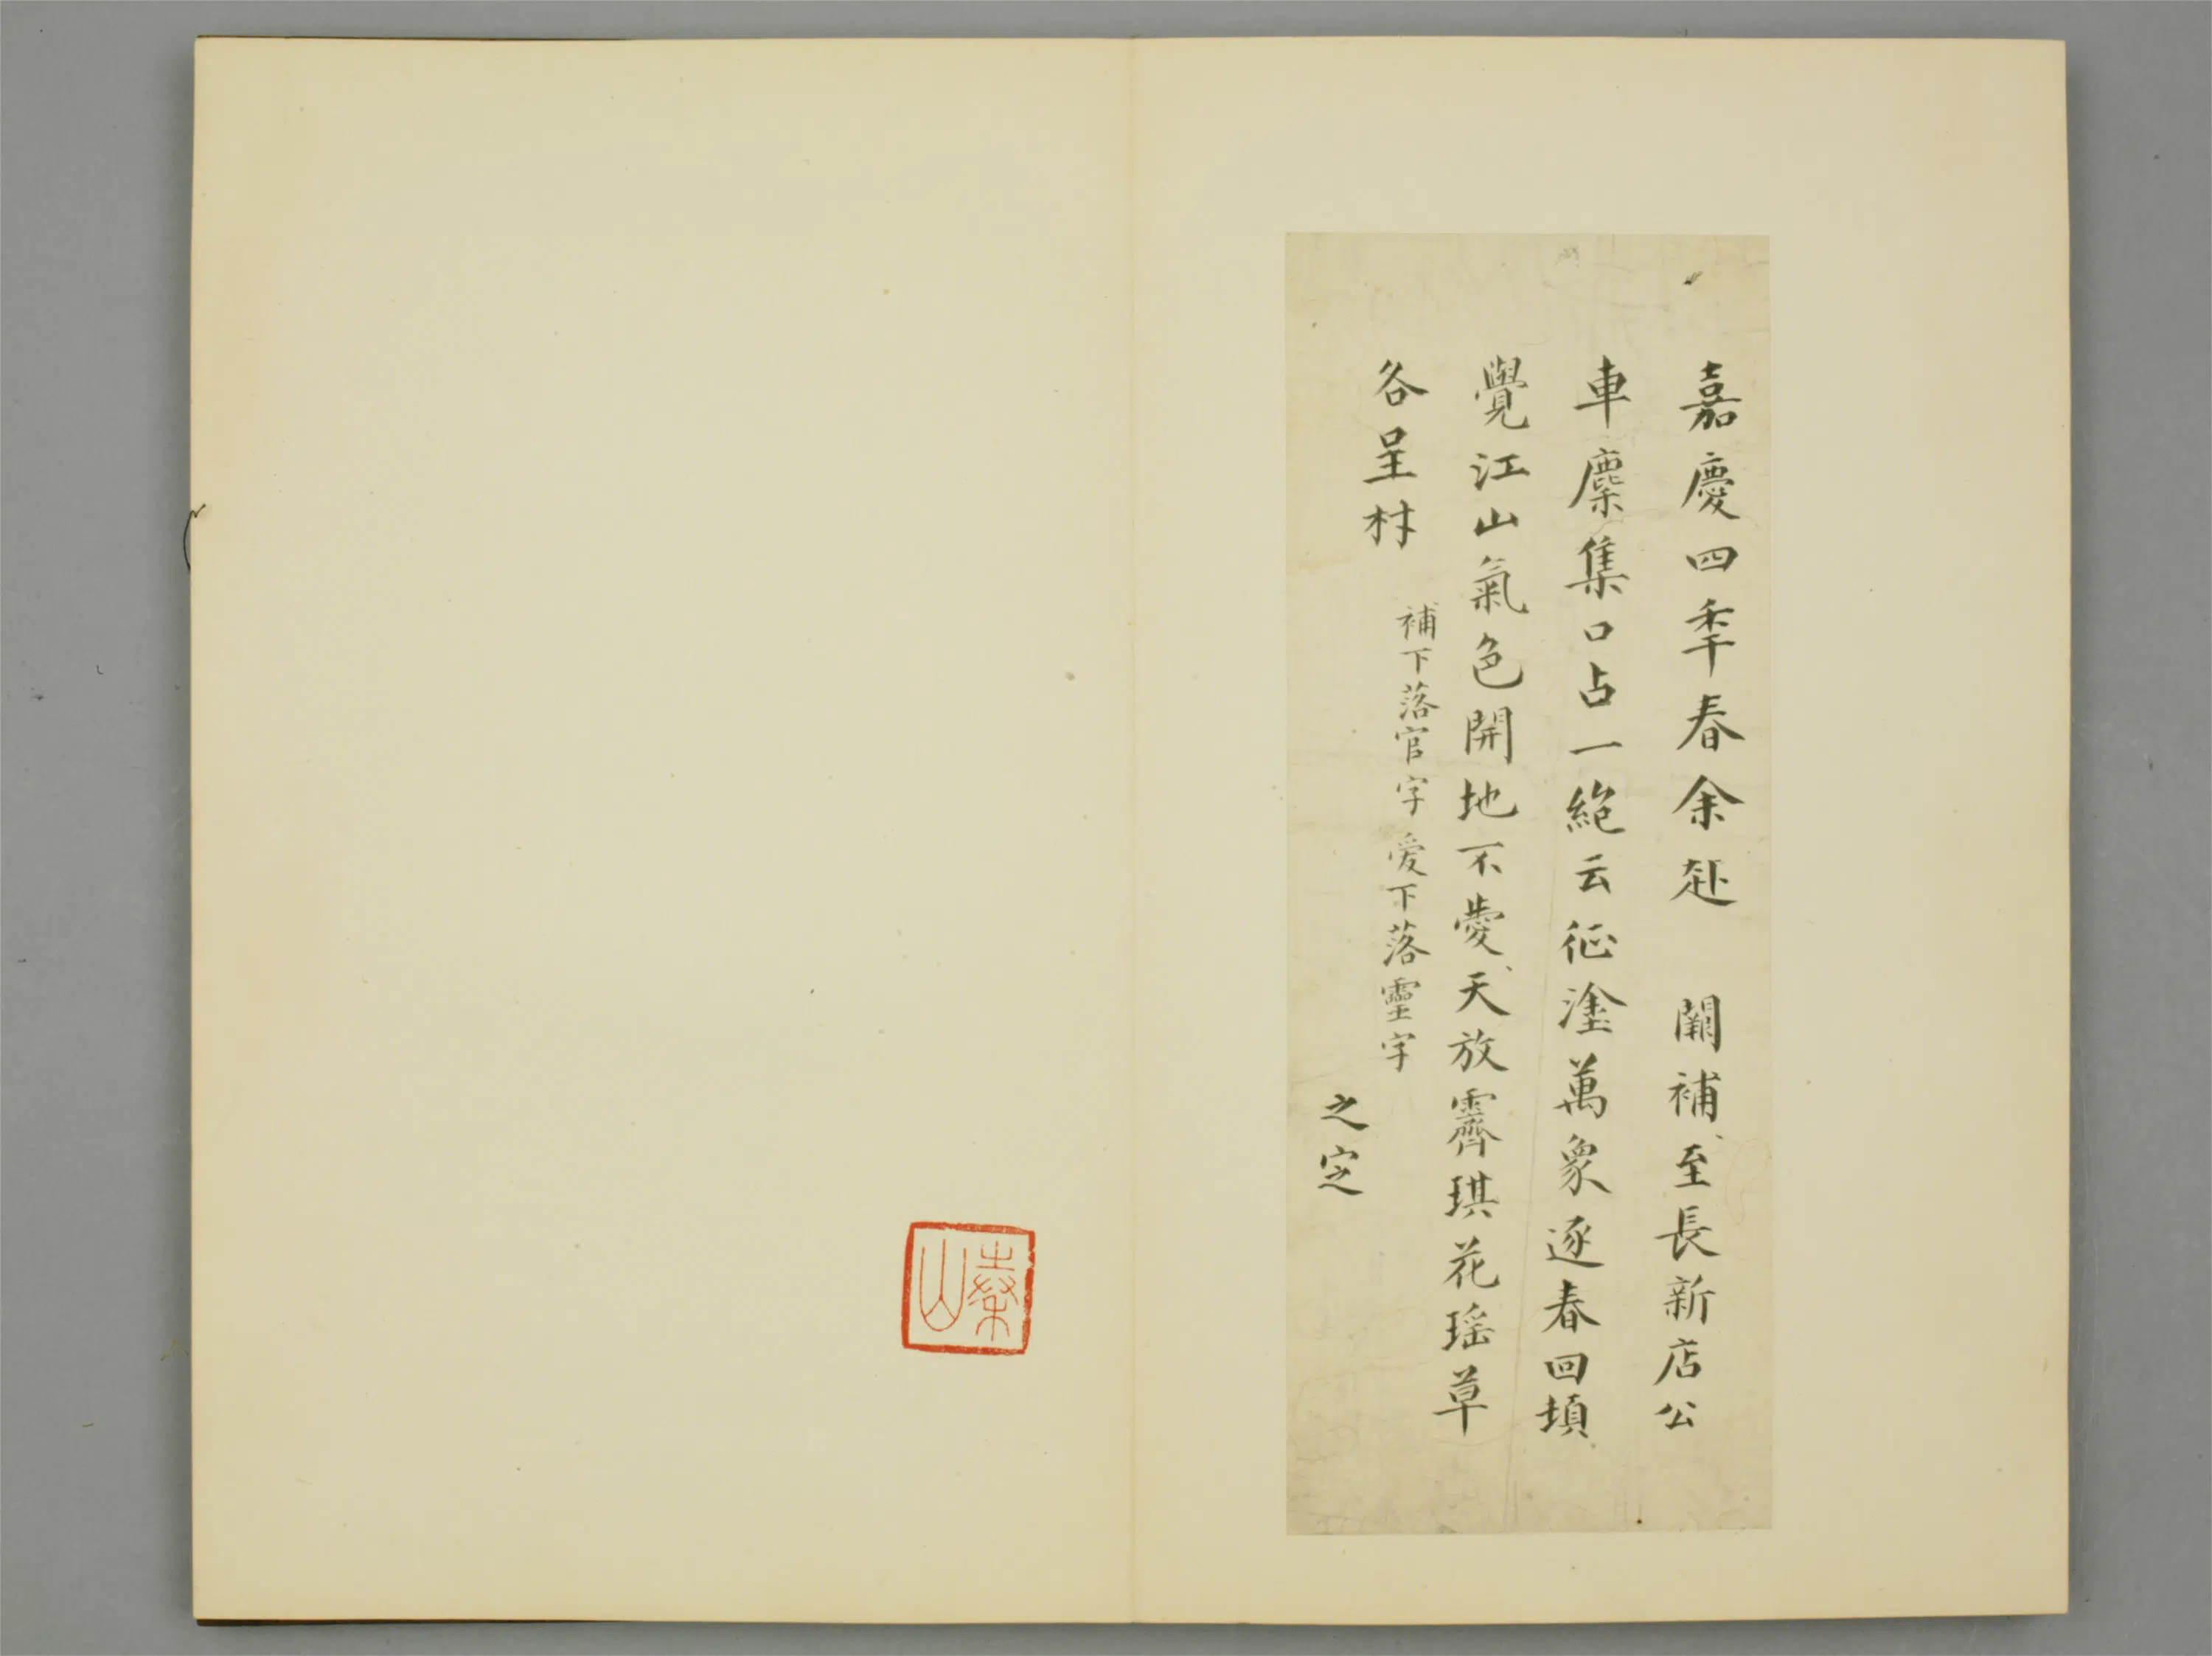 嘉慶四秊春余赴 闕補至長新店公
車麇集口占一絕云征塗萬象逐春回頓
覺江山氣色開地不愛天放霽琪花瑤草
各呈材
補下落官字愛下落靈字
之定
秦山